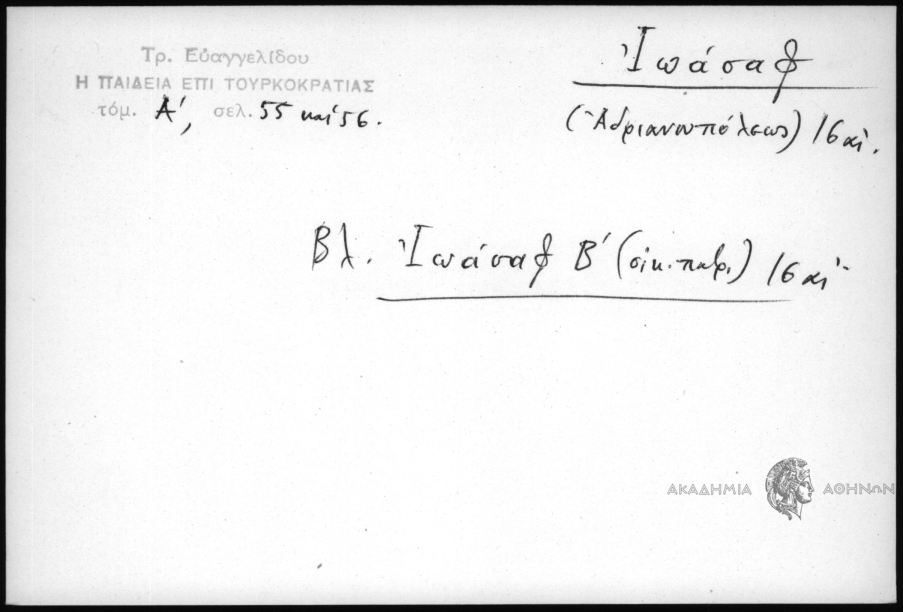 Τρ. Εὐαγγελίδου
Η ΠΑΙΔΕΙΑ ΕΠΙ ΤΟΥΡΚΟΚΡΑΤΙΑΣ
τόμ. Α', σελ. 55 καί 56.
Ἰωάσαφ
(Ἀδριανουπόλεως) 16 αἰ.
Βλ. Ἰωάσαφ Β' (οἰκ. πατρ.) 16 αἰ.
ΑΚΑΔΗΜΙΑ ΑΘΗΝΩΝ